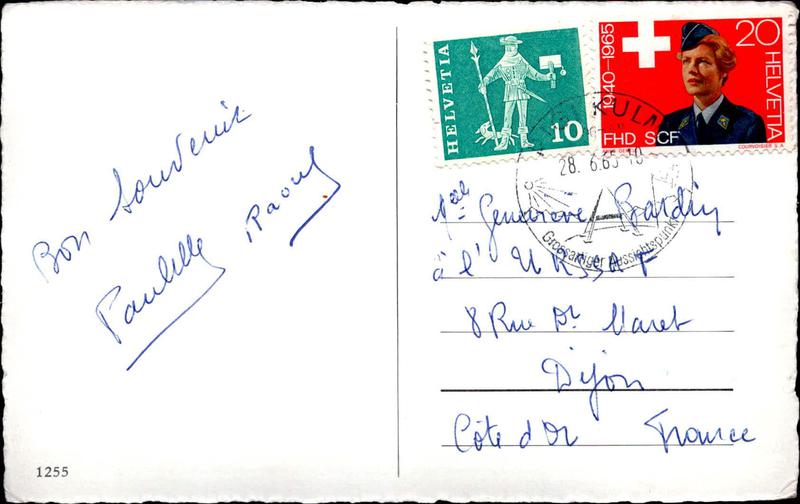 Bon souvenir
Paulette Raoul
1255
HELVETIA
10
1940-1965
20
HELVETIA
FHD SCF
COURVOISIER S.A.
KULM
28. 6.65-10
Grossartiger Aussichtspunkt
Melle Geneviève Bardin
à l'URSSAF
8 Rue Dr Maret
Dijon
Côte d'Or France